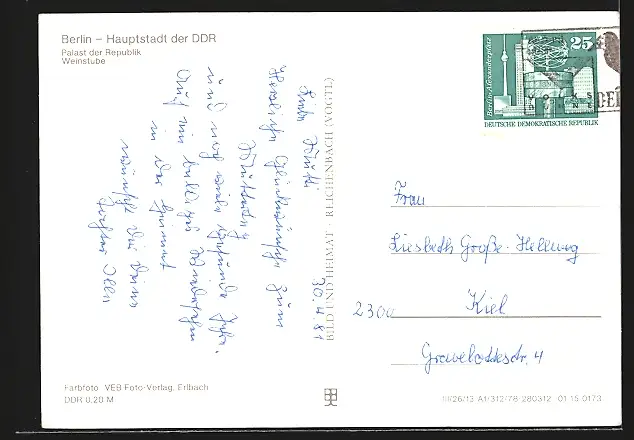 Berlin – Hauptstadt der DDR
Palast der Republik
Weinstube
30.4.81
Liebe Mutti
Herzliche Glückwünsche zum
Muttertag
und noch viele gesunde Jahre.
Auf ein baldiges Wiedersehen
in der Heimat
wünscht Dir Deine
Tochter
BILD UND HEIMAT · REICHENBACH (VOGTL)
25
Berlin-Alexanderplatz
DEUTSCHE DEMOKRATISCHE REPUBLIK
Frau
Liesbeth Große-Hellwig
2300 Kiel
Gravelottestr. 4
Farbfoto: VEB Foto-Verlag, Erlbach
DDR 0,20 M
A1/312/78 280312 01 15 0173